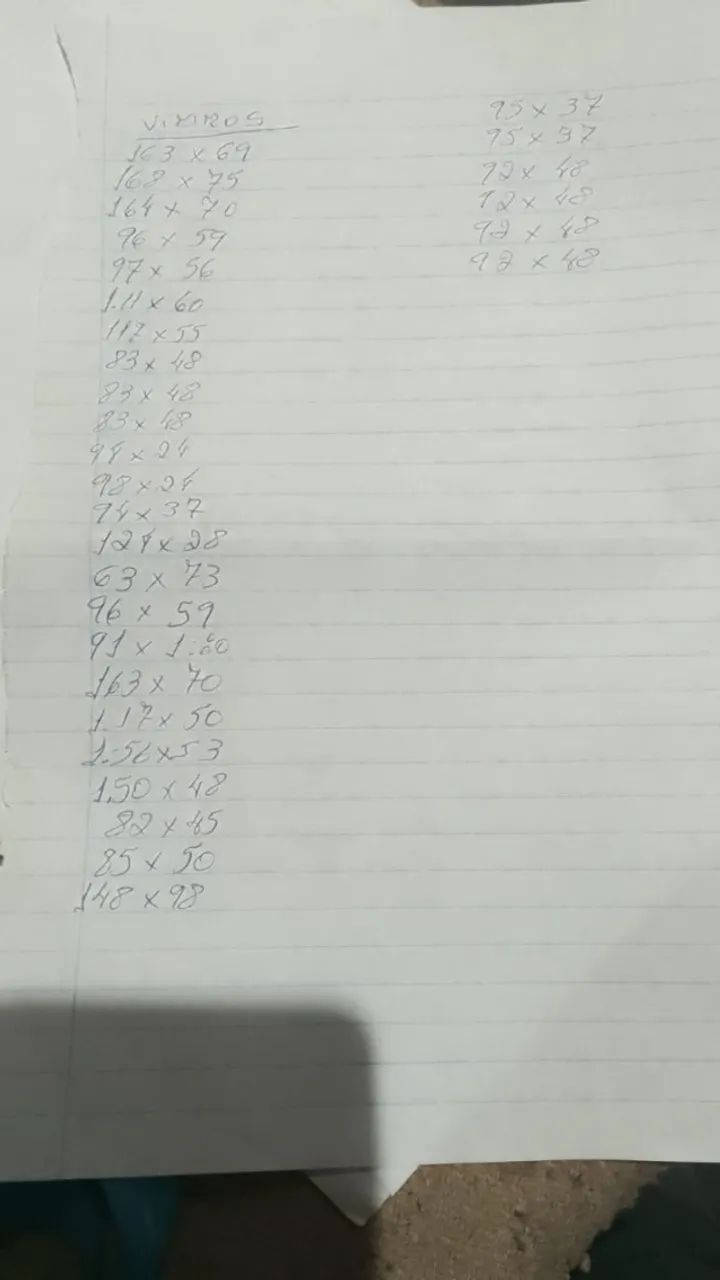 VIDROS
163 x 69
168 x 75
164 x 70
96 x 59
97 x 56
1.11 x 60
117 x 55
83 x 48
83 x 48
83 x 48
94 x 24
98 x 24
94 x 37
124 x 28
63 x 73
96 x 59
91 x 1:60
163 x 70
1.17 x 50
1:56 x 53
1.50 x 48
82 x 45
85 x 50
148 x 98
95 x 37
95 x 37
92 x 48
92 x 48
92 x 48
92 x 48